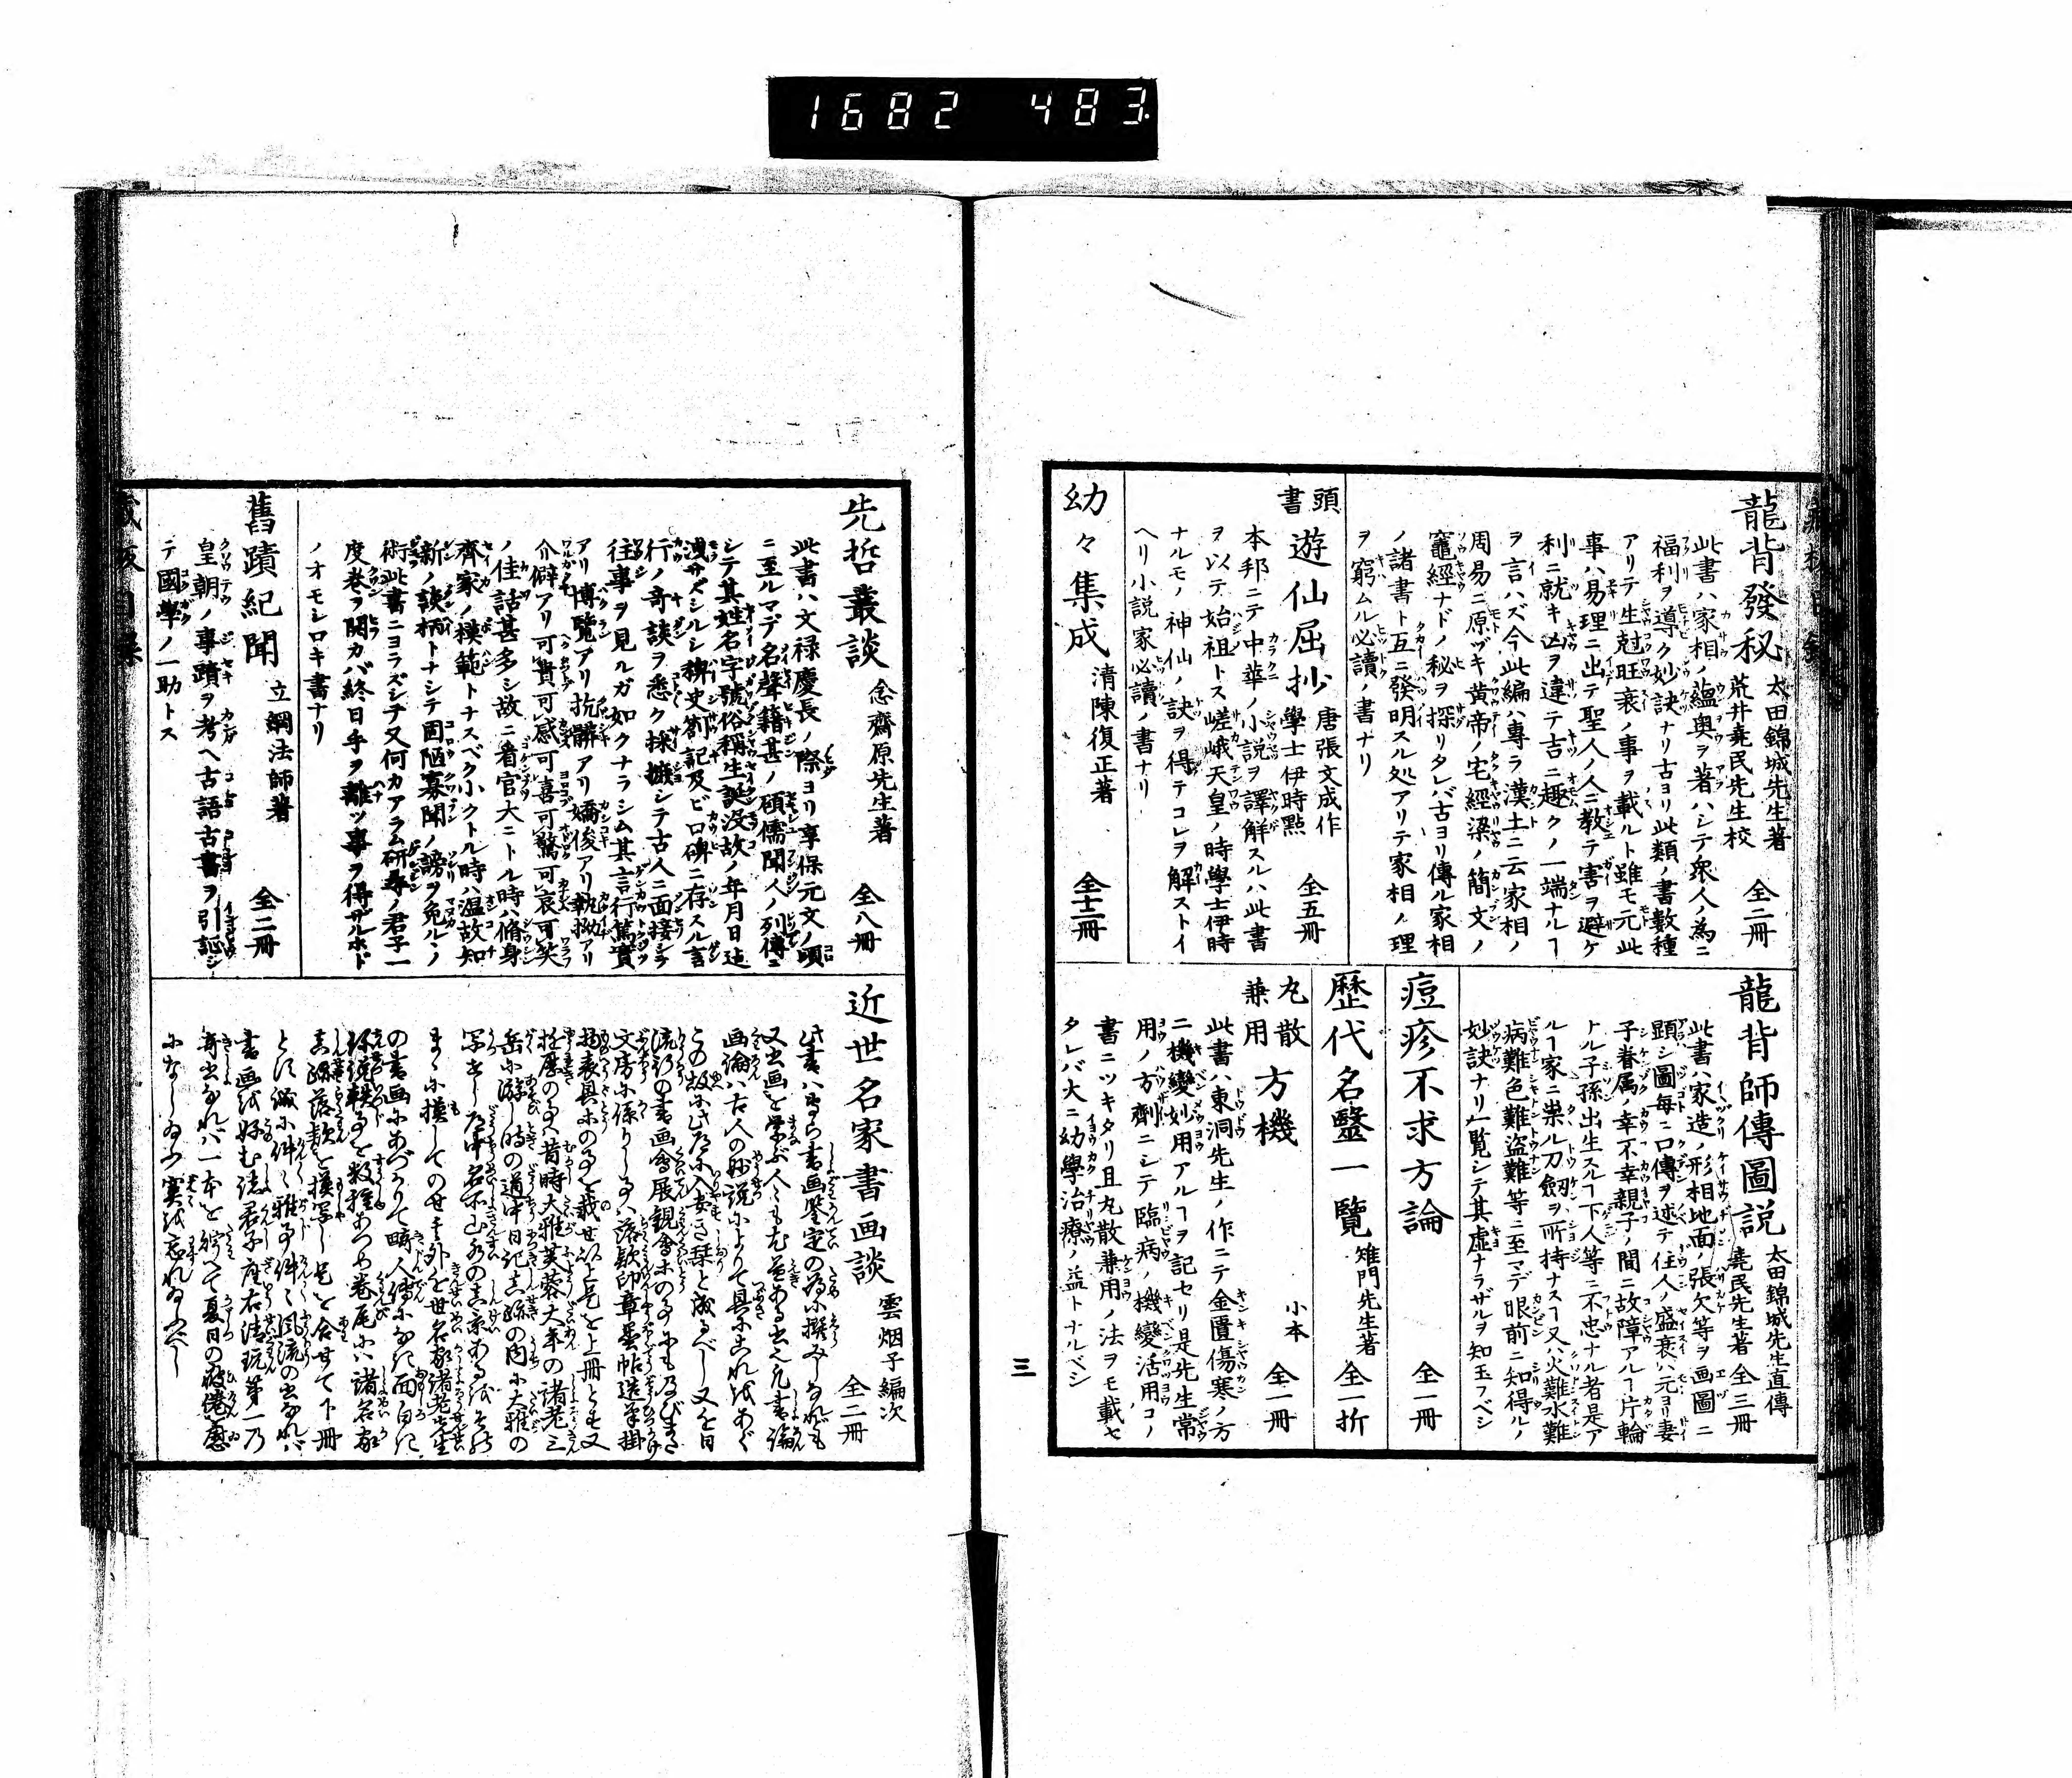 1682 483
龍背發秘 太田錦城先生著 荒井堯民先生校 全二冊
此書ハ家相ノ蘊奥ヲ著ハシテ衆人ノ為ニ
福利ヲ導ク妙訣ナリ古ヨリ此類ノ書數種
アリテ生尅旺衰ノ事ヲ載ルト雖モ元此
事ハ易理ニ出テ聖人ノ人ニ教テ害ヲ避ケ
利ニ就キ凶ヲ違テ吉ニ趣クノ一端ナルヿ
ヲ言ハズ今此編ハ專ラ漢土ニ云家相ノ
周易ニ原ヅキ黄帝ノ宅經梁ノ簡文ノ
竈經ナドノ秘ヲ探リタレバ古ヨリ傳ル家相
ノ諸書ト互ニ發明スル処アリテ家相ノ理
ヲ窮ムル必讀ノ書ナリ
頭書 遊仙屈抄 唐張文成作 學士伊時點 全五冊
本邦ニテ中華ノ小説ヲ譯解スルハ此書
ヲ以テ始祖トス嵯峨天皇ノ時學士伊時
ナルモノ神仙ノ訣ヲ得テコレヲ解ストイ
ヘリ小説家必讀ノ書ナリ
幼々集成 清陳復正著 全十二冊
龍背師傳圖説 太田錦城先生直傳 堯民先生著 全三冊
此書ハ家造ノ形相地面ノ張欠等ヲ画圖ニ
顕シ圖毎ニ口傳ヲ述テ住人ノ盛衰ハ元ヨリ妻
子眷属ノ幸不幸親子ノ間ニ故障アルヿ片輪
ナル子孫出生スルヿ下人等ニ不忠ナル者是ア
ルヿ家ニ祟ル刀劔ヲ所持ナスヿ又ハ火難水難
病難色難盗難等ニ至マデ眼前ニ知得ルノ
妙訣ナリ一覧シテ其虚ナラザルヲ知玉フベシ
痘疹不求方論 全一冊
歴代名醫一覽 雉門先生著 全一折
丸散兼用方機 小本 全一冊
此書ハ東洞先生ノ作ニテ金匱傷寒ノ方
ニ機變妙用アルヿヲ記セリ是先生常
用ノ方劑ニシテ臨病ノ機變活用コノ
書ニツキタリ且丸散兼用ノ法ヲモ載セ
タレバ大ニ幼學治療ノ益トナルベシ
三
先哲叢談 念齋原先生著 全八冊
此書ハ文禄慶長ノ際ヨリ享保元文ノ頃
ニ至ルマデ名聲籍甚ノ碩儒聞人ノ列傳ニ
シテ其姓名字號俗稱生誕没故ノ年月日迠
洩サズシルシ稗史劄記及ビ口碑ニ存スル言
行ノ奇談ヲ悉ク採摭シテ古人ニ面接シテ
往事ヲ見ルガ如クナラシム其言行篤實
アリ博覽アリ抗髒アリ矯俊アリ執拗アリ
介僻アリ可貴可感可喜可驚可哀可笑
ノ佳話甚多シ故ニ着官大ニトル時ハ脩身
齊家ノ模範トナスベク小クトル時ハ温故知
新ノ談柄トナシテ固陋寡聞ノ謗ヲ免ルノ
術此書ニヨラズシテ又何カアラム研尋ノ君子一
度巻ヲ開カバ終日手ヲ離ツ事ヲ得ザルホド
ノオモシロキ書ナリ
舊蹟紀聞 立綱法師著 全二冊
皇朝ノ事蹟ヲ考ヘ古語古書ヲ引證シ
テ國學ノ一助トス
近世名家書画談 雲烟子編次 全二冊
此書ハ専ら書画鑒定の為に撰みしなれども
又書画を学ぶ人にも尤益ある書也凡書論
画論ハ古人の妙説によりて具にこれをあぐ
流行の書画會展観會等の事にも及びまた
文房に係りし事ハ落款印章墨帖造筆掛
物表具等の事を載せ以上是を上冊とす又
岳に游し時の道中日記真跡の内に大雅の
の書画にあづかりて畸人傳になき面白き
真跡落款を模写し是を合せて下冊
書画を好む諸君子座右清玩第一乃